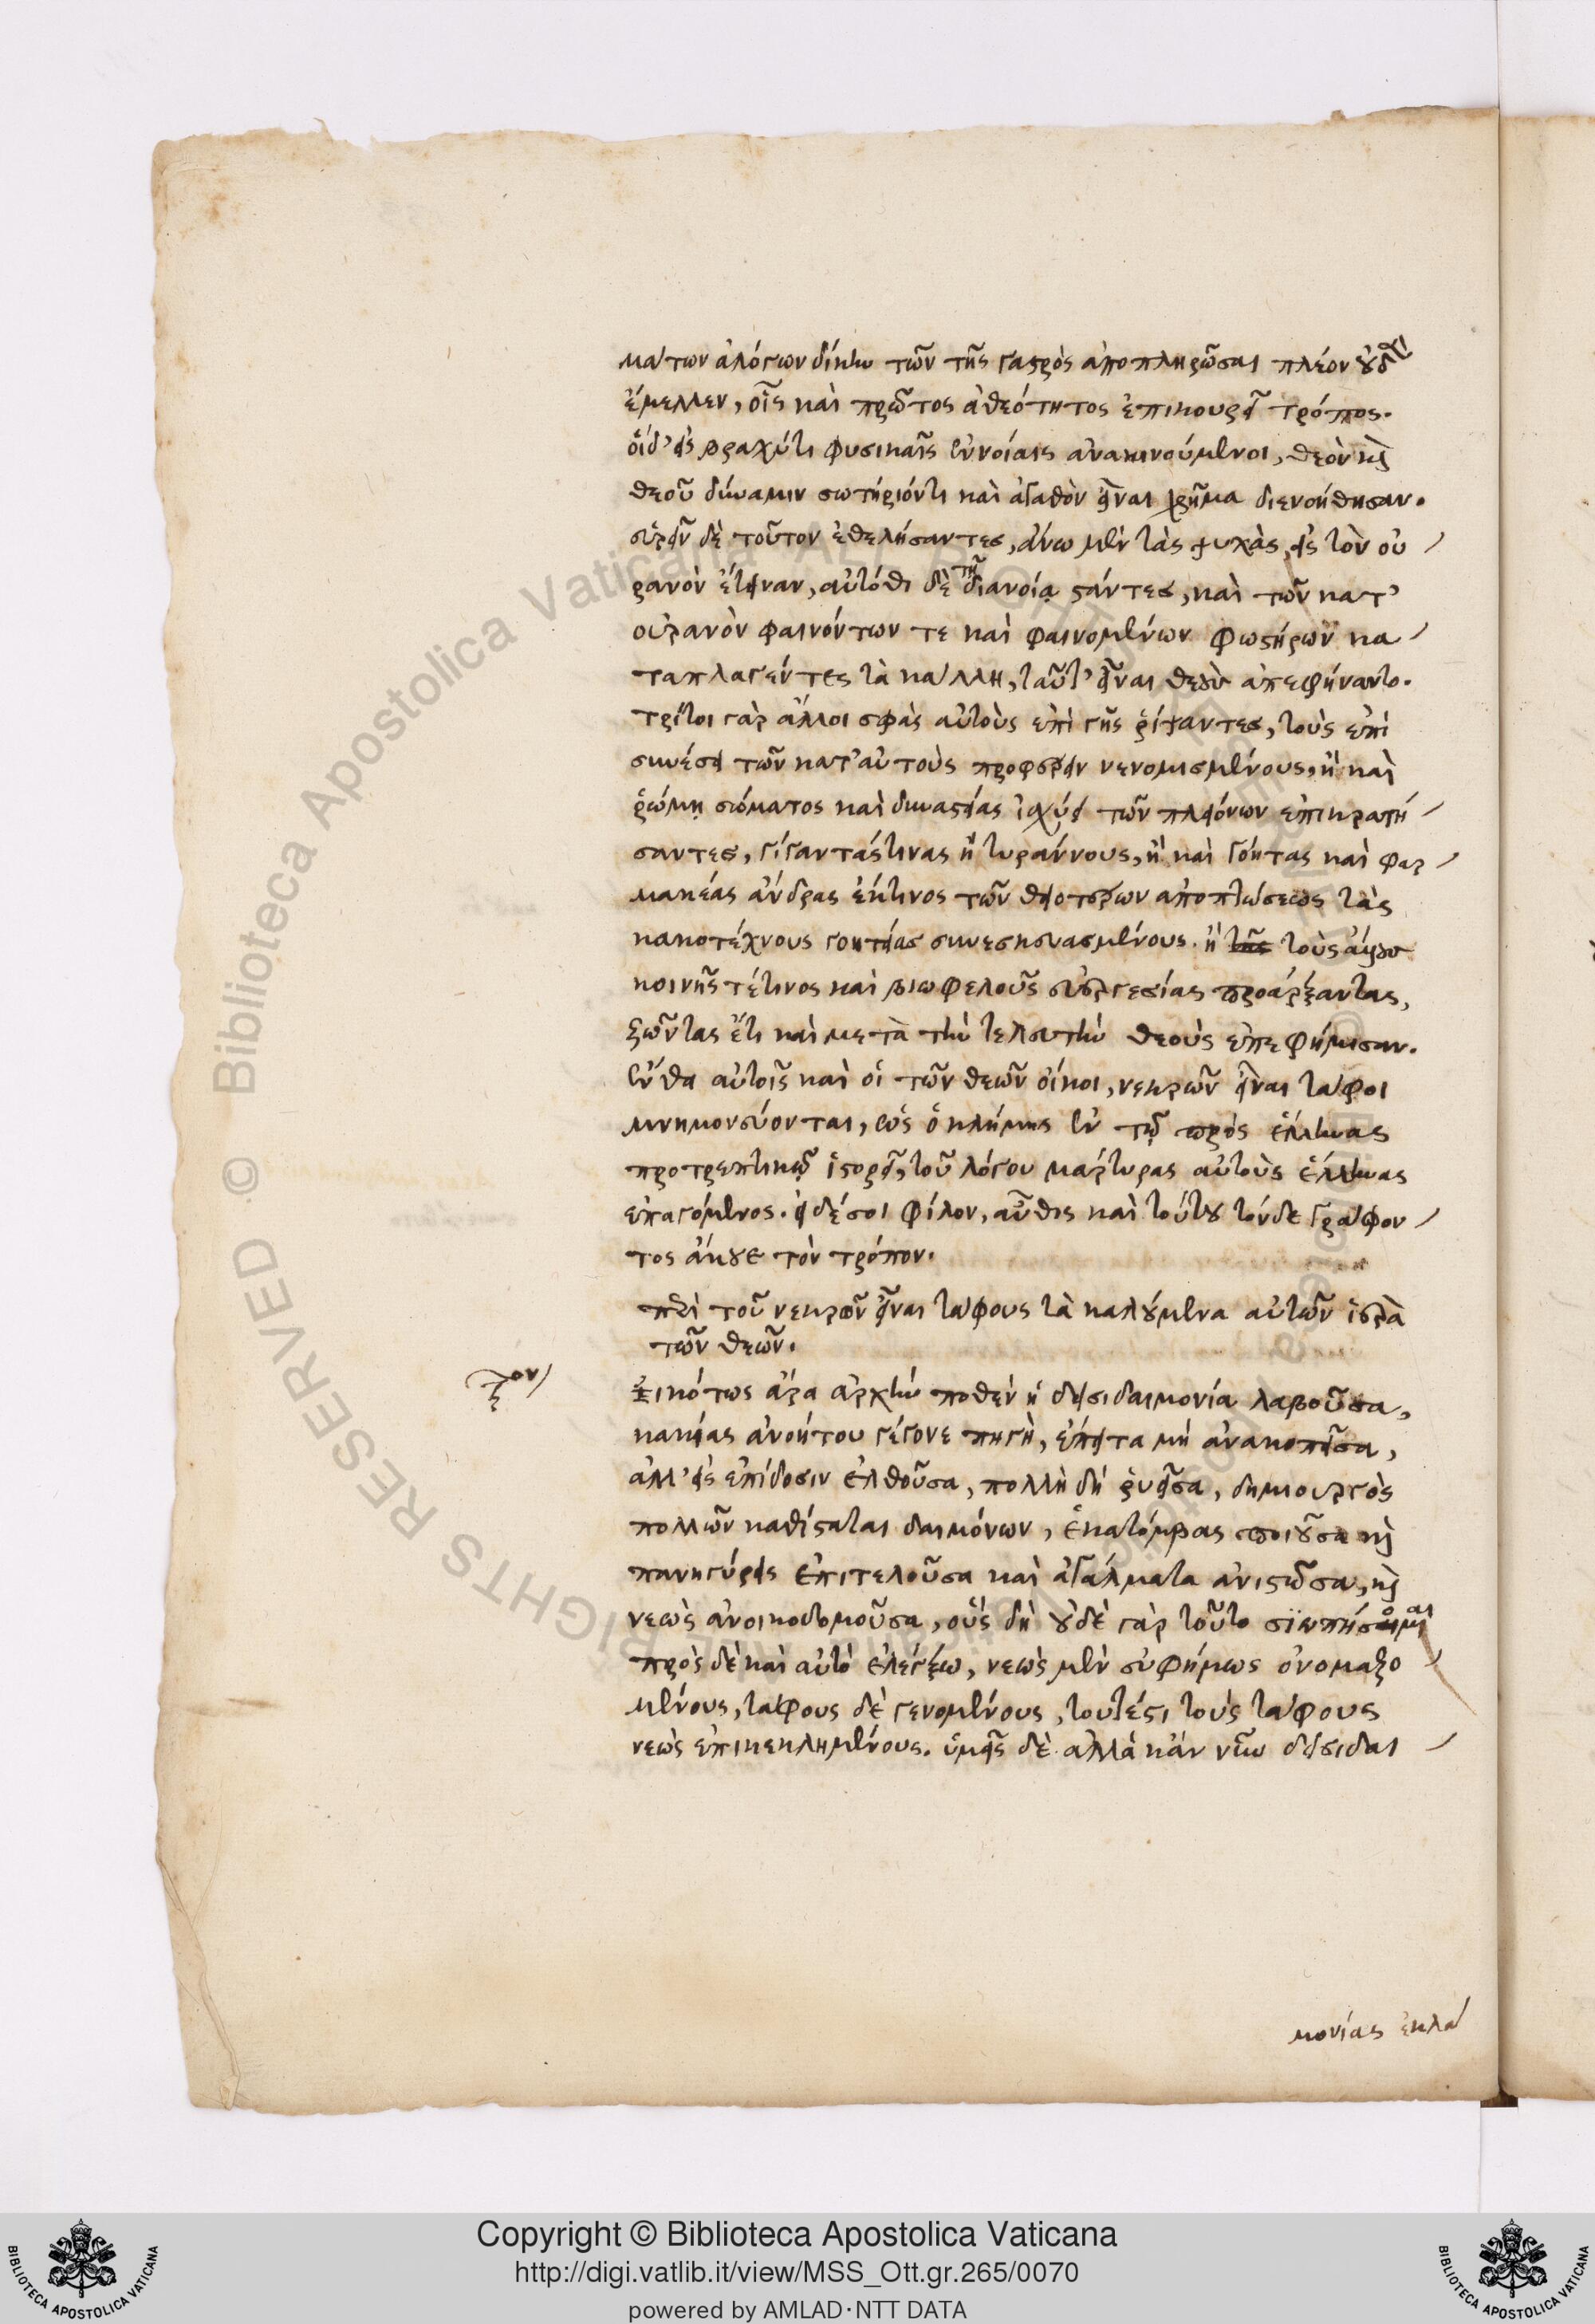 μάτων ἀλόγων δίκην τῶν τῆς γαστρὸς ἀποπληρῶσαι πλέον οὐδὲν
ἔμελλεν, οἷς καὶ πρῶτος ἀθεότητος ἐπικουρεῖ τρόπος.
οἱ δ' εἰς βραχύ τι φυσικαῖς ἐννοίαις ἀνακινούμενοι, θεὸν καὶ
θεοῦ δύναμιν σωτήριόν τι καὶ ἀγαθὸν εἶναι χρῆμα διενοήθησαν.
εὑρεῖν δὲ τοῦτον ἐθελήσαντες, ἄνω μὲν τὰς ψυχὰς εἰς τὸν οὐ
ρανὸν ἔτειναν, αὐτόθι δὲ τῇ διανοίᾳ στάντες, καὶ τῶν κατ'
οὐρανὸν φαινόντων τε καὶ φαινομένων φωστήρων κα
ταπλαγέντες τὰ κάλλη, ταῦτ' εἶναι θεοὺς ἀπεφήναντο.
τρίτοι γὰρ ἄλλοι σφὰς αὐτοὺς ἐπὶ γῆς ῥίψαντες, τοὺς ἐπὶ
συνέσει τῶν κατ' αὐτοὺς προφέρειν νενομισμένους, ἢ καὶ
ῥώμῃ σώματος καὶ δυναστείας ἰσχύει τῶν πλειόνων ἐπικρατή
σαντες, γίγαντάς τινας ἢ τυράννους, ἢ καὶ γόητας καὶ φαρ
μακέας ἄνδρας ἔκ τινος τῶν θειοτέρων ἀποπτώσεως τὰς
κακοτέχνους γοητείας συνεσκευασμένους. ἢ τοὺς ἄλλου
κοινῆς τέ τινος καὶ βιωφελοῦς εὐεργεσίας προάρξαντας,
ζῶντας ἔτι καὶ μετὰ τὴν τελευτὴν θεοὺς ἐπεφήμισαν.
ἔνθα αὐτοῖς καὶ οἱ τῶν θεῶν οἶκοι, νεκρῶν εἶναι τάφοι
μνημονεύονται, ὡς ὁ κλήμης ἐν τῷ πρὸς ἕλληνας
προτρεπτικῷ ἱστορεῖ, τοῦ λόγου μάρτυρας αὐτοὺς ἕλληνας
ἐπαγόμενος. εἰ δέ σοι φίλον, αὖθις καὶ τούτου τόνδε γράφον
τος ἄκουε τὸν τρόπον.
περὶ τοῦ νεκρῶν εἶναι τάφους τὰ καλούμενα αὐτῶν ἱερὰ
τῶν θεῶν.
Εἰκότως ἄρα ἀρχήν ποθεν ἡ δεισιδαιμονία λαβοῦσα,
κακίας ἀνοήτου γέγονε πηγὴ, ἔπειτα μὴ ἀνακοπεῖσα,
ἀλλ' εἰς ἐπίδοσιν ἐλθοῦσα, πολλὴ δὴ ῥυεῖσα, δημιουργὸς
πολλῶν καθίσταται δαιμόνων, ἑκατόμβας ποιοῦσα καὶ
πανηγύρεις ἐπιτελοῦσα καὶ ἀγάλματα ἀνιστῶσα, καὶ
νεὼς ἀνοικοδομοῦσα, οὓς δὴ οὐδὲ γὰρ τοῦτο σιωπήσομαι
πρὸς δὲ καὶ αὐτὸ ἐλέγξω, νεὼς μὲν εὐφήμως ὀνομαζο
μένους, τάφους δὲ γενομένους, τουτέστι τοὺς τάφους
νεὼς ἐπικεκλημένους. ὑμεῖς δὲ ἀλλὰ κἂν νῦν δεισιδαι
μονίας ἐκλά
Copyright © Biblioteca Apostolica Vaticana
http://digi.vatlib.it/view/MSS_Ott.gr.265/0070
powered by AMLAD·NTT DATA
BIBLIOTECA APOSTOLICA VATICANA
BIBLIOTECA APOSTOLICA VATICANA